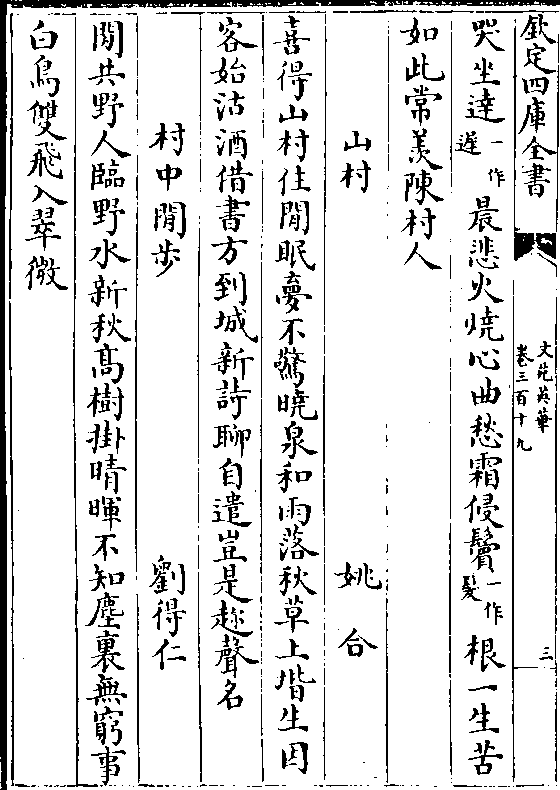 欽定四庫全書
文苑英華
卷三百十九
三
哭坐達一作遲晨悲火燒心曲愁霜侵鬢一作髮根一生苦
如此常羨陳村人
山村 姚合
喜得山村住閒眠夢不驚曉泉和雨落秋草上堦生因
客始沽酒借書方到城新詩聊自遣豈是趂聲名
村中閒步 劉得仁
閒共野人臨野水新秋髙樹掛晴暉不知塵裏無窮事
白鳥雙飛入翠微